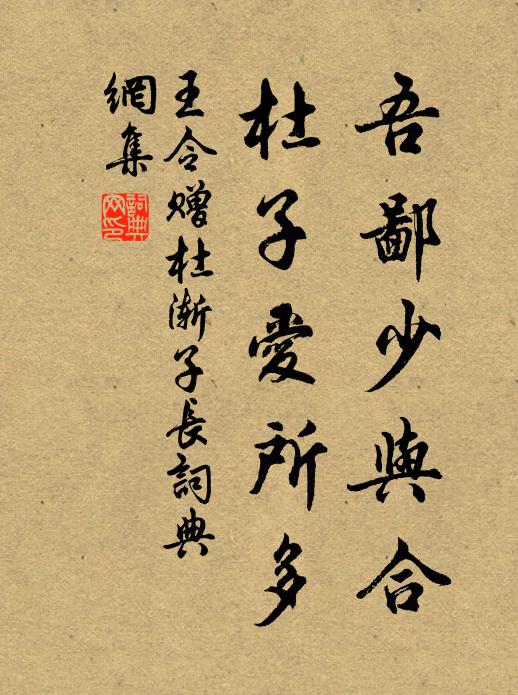 吾鄙少與合
杜子愛所多
王令贈杜漸子長詞典
網集
詞典
网印